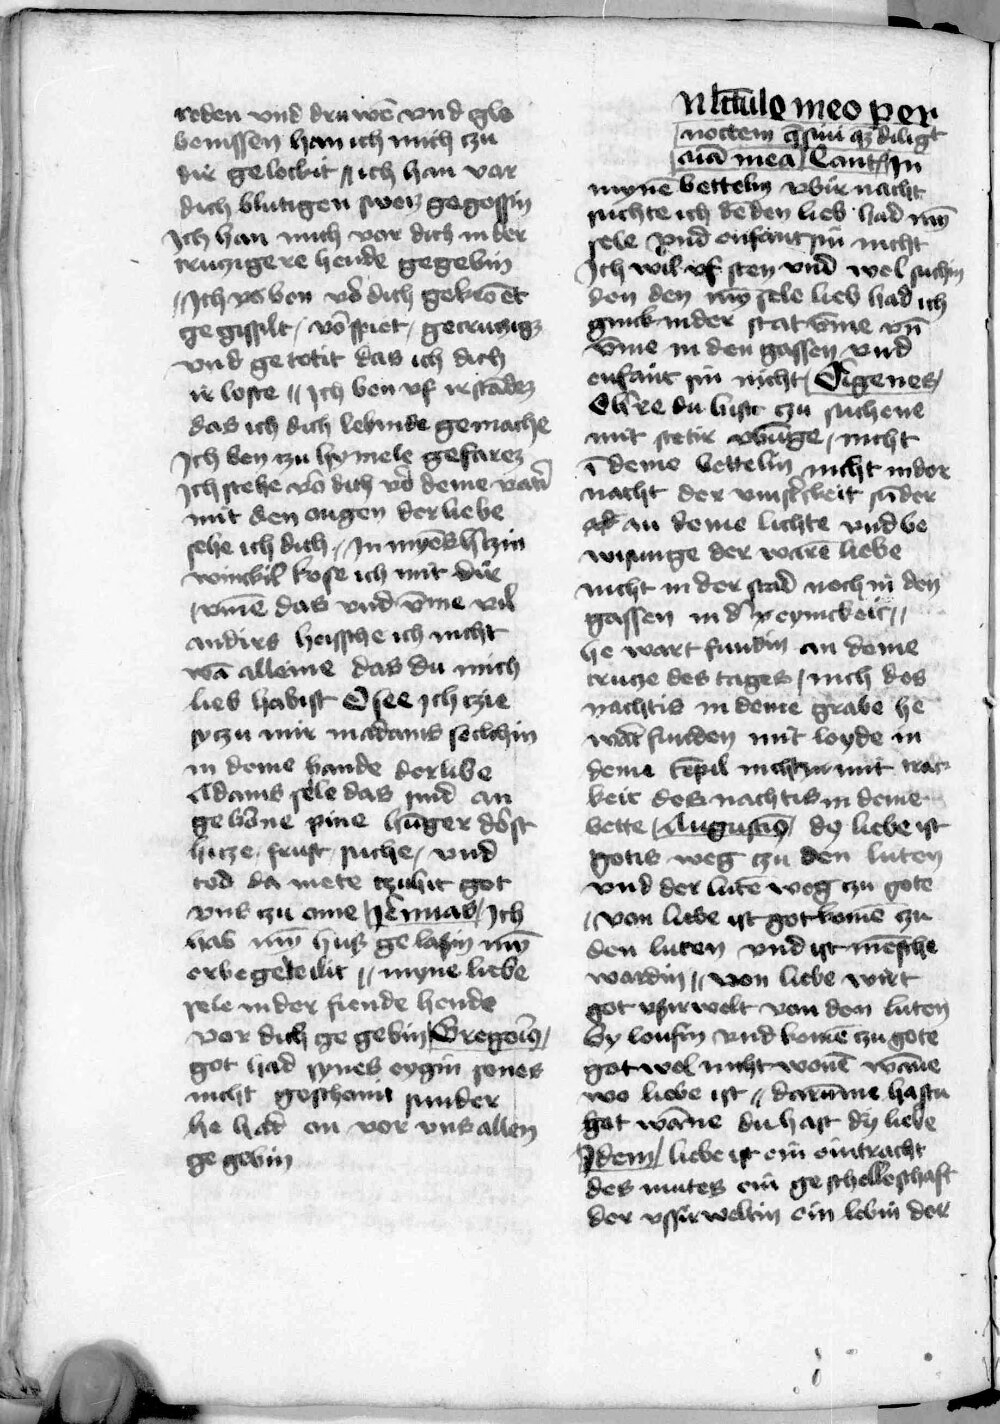 reden vnd druwē vnd glo
benissen han ich mich czu
dir gelockit // ich han vor
dich blutigen sweis gegossin
Ich han mich vor dich in der
cruczigere hende gegebin
// Ich ben vō dich gekrōet
gegissilt / vōspiet / gecrucziget
vnd getotit das ich dich
irloste // Ich ben vf irstādē
das ich dich lebinde gemache
Ich ben czu hymele gefarē
Ich stehe vō dich vō deme vatir
mit den ougen der liebe
sehe ich dich / In mynēs h'tzin
winckil kose ich mit dir
/ vmē das vnd vme vil
andirs heissche ich nicht
wā alleine das du mich
lieb habist Osee Ich czie
sy czu mir in adams seilchin
in deme bande der libe
Adams seile das sint an
gebōne pine hūger dōst
hicze / frust / suche / vnd
tod da mete czuhit got
vns czu ome / Jeremias / Ich
hab mȳ hus gelasin mȳ
erbe geteilit // myne liebe
sele in der fiende hende
vor dich gegebin / Gregoius /
got had synes eygin sones
nicht geschonit sunder
he had en vor vns allen
gegebin
N lectulo meo per
noctem q̄siui qz diligt
aīa mea / Cant / In
mynē bettelin vbir nacht
suchte ich dē den lieb had mȳ
sele vnd enfant sin nicht
Ich wil vf sten vnd wel suchin
den den mȳ sele lieb had ich
ginck in der stat vme vn̄
vme in den gassen vnd
enfant sin nicht / Origenes /
O kere du list czu suchene
mit stetir vbūge / nicht
ī deme bettelin nicht in der
nacht der vinst'ckeit sūder
an deme lichte vnd be
wisunge der warē liebe
nicht in der stad noch in den
gassen in d' reynickeit //
he wart fundin an deme
crucze des tages / nich des
nachtis in deme grabe he
wart funden mit leyde in
deme tēpil nicht mit trac
keit des nachtis in deme
bette / Augustin9 / dy liebe ist
gotis weg czu den luten
vnd der lute weg czu gote
/ von liebe ist got komē czu
den luten vnd ist mēsche
wordin // von liebe wirt
got vzirwelt von den luten
by loufin vnd komē czu gote
got wel nicht wonē wāne
wo liebe ist // darūme hastu
got wāne du hast dy liebe
Idem / liebe ist ein eintracht
des mutes ein geschelleschaft
der vssirweltin ein lebin der